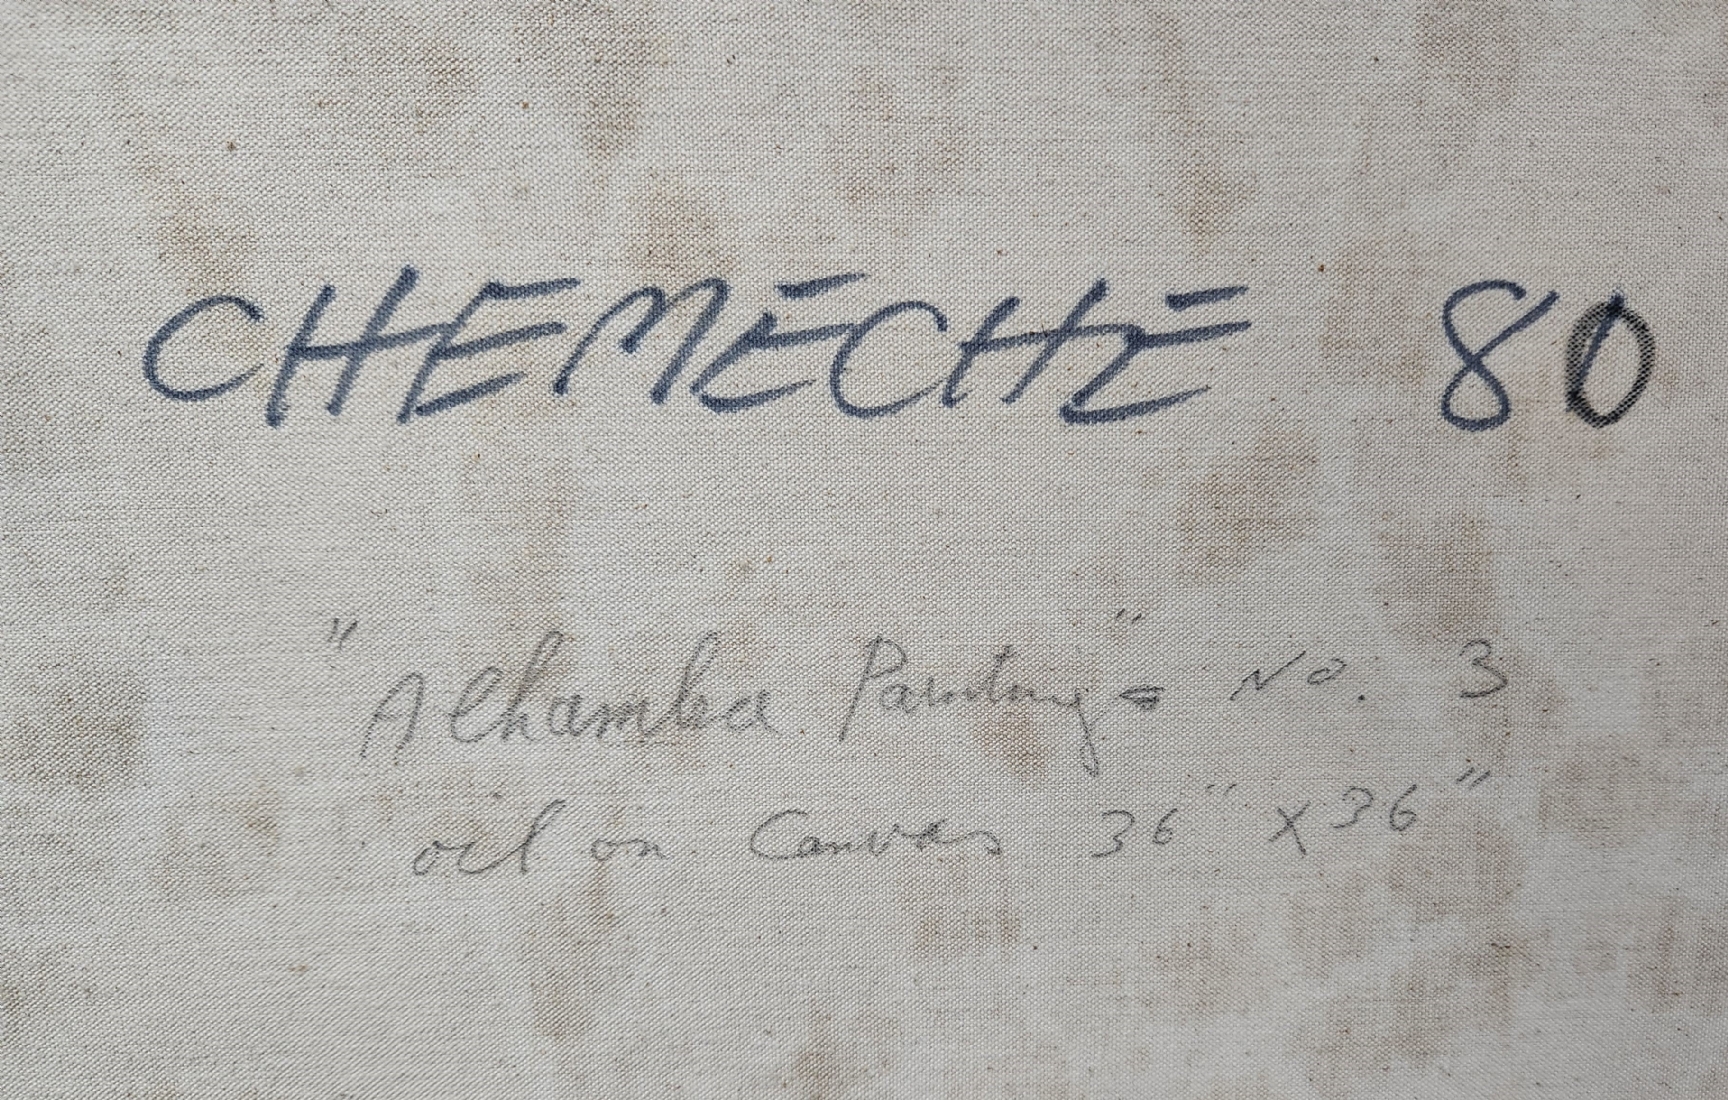 CHEMECHE 80
"Alhambra Painting" - No. 3
oil on Canvas 36" X 36"